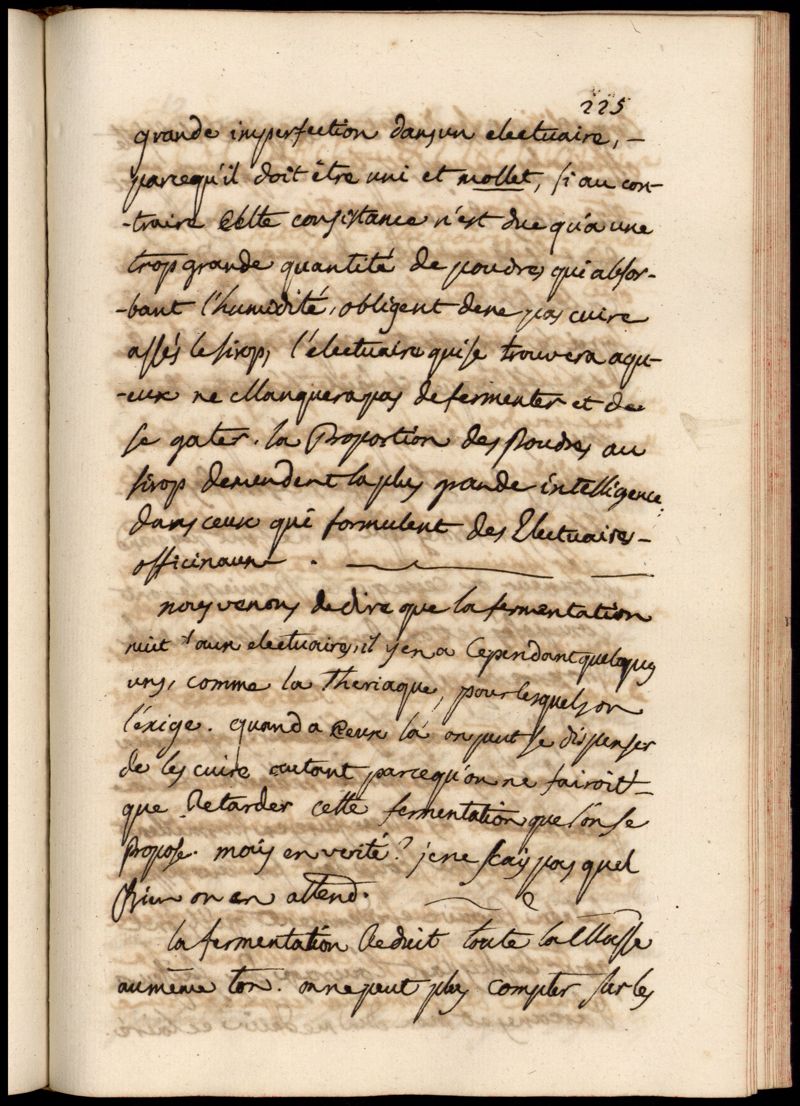 225
grande imperfection dans un electuaire, -
parcequ'il doit être uni et mollet, si au con-
-traire cette consistance n'est due qu'a une
trop grande quantité de poudres qui absor-
-bant l'humidité, obligent de ne pas cuire
assés le sirop, l'électuaire qui se trouvera aqu-
-eux ne Manquera pas de fermenter et de
se gater. la Proportion des Poudres au
sirop demendent la plus grande intelligence
dans ceux qui formulent des Electuaires -
officinaux.
nous venons de dire que la fermentation
nuit aux electuaires, il y en a Cependant quelques
uns, comme la Theriaque, pour lesquels on
l'éxige. quand a Ceux là on peut se dispenser
de les cuire autant parcequ'on ne fairoit -
que Retarder cette fermentation que l'on se
Propose. mais en verité? je ne scais pas quel
Bien on en attend.
la fermentation Reduit toute la Masse
au même ton. on ne peut plus compter sur les